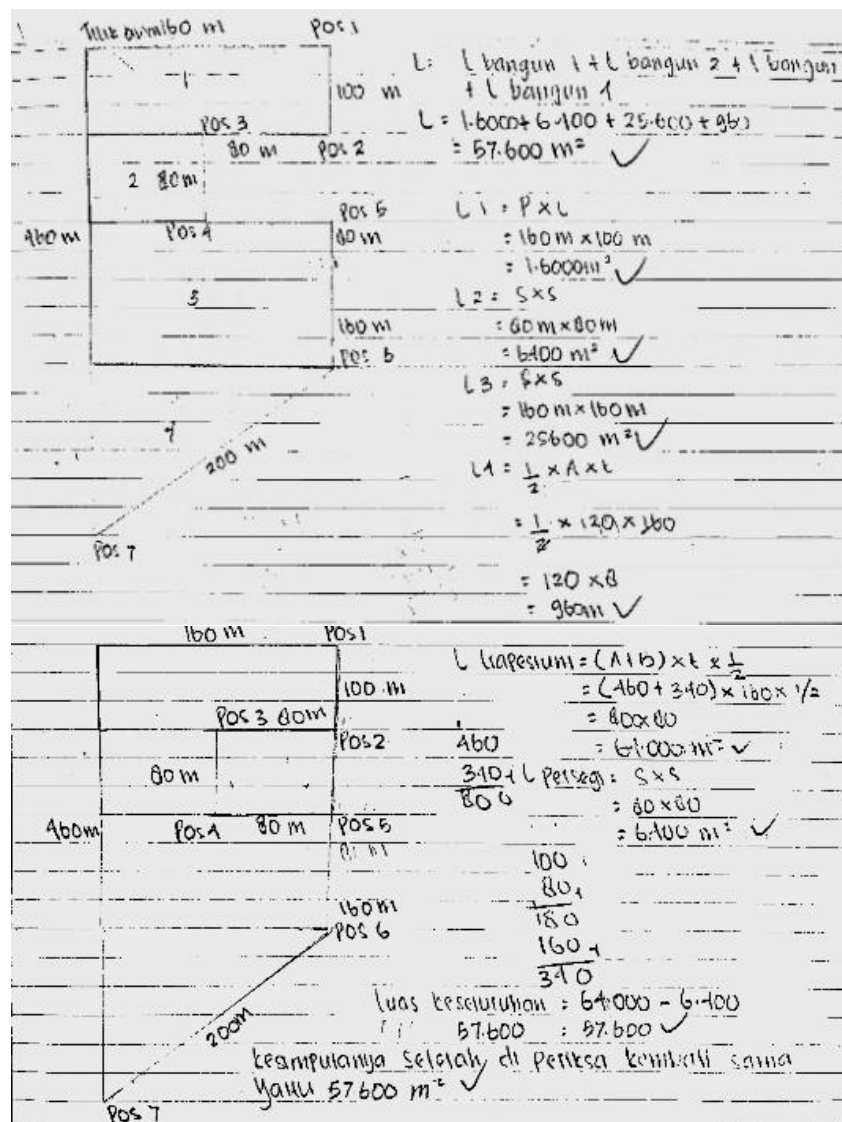 160 m POS 1
1
100 m
POS 3
80 m POS 2
2 80 m
POS 5
460 m POS 4 80 m
3
160 m
POS 6
4
200 m
POS 7
L = L bangun 1 + L bangun 2 + L bangun
+ L bangun 4
L = 1.6000 + 6.400 + 25.600 + 960
= 57.600 m² ✓
L 1 = P x L
= 160 m x 100 m
= 1.6000 m² ✓
L 2 = S x S
= 80 m x 80 m
= 6400 m² ✓
L 3 = S x S
= 160 m x 160 m
= 25600 m² ✓
L 4 = 1/2 x A x t
= 1/2 x 120 x 160
= 120 x 8
= 960 m ✓
160 m POS 1
100 m
POS 3 80 m
POS 2
80 m
460 m POS 4 80 m POS 5
160 m
POS 6
200 m
POS 7
L trapesium = (A + B) x t x 1/2
= (460 + 340) x 160 x 1/2
= 80 x 80
= 64.000 m² ✓
460
340 +
800
L persegi = S x S
= 80 x 80
= 6.400 m² ✓
100
80 +
180
160 +
340
Luas keseluruhan = 64.000 - 6.400
57.600 = 57.600 ✓
kesimpulanya setelah di periksa kembali sama
yaitu 57600 m² ✓